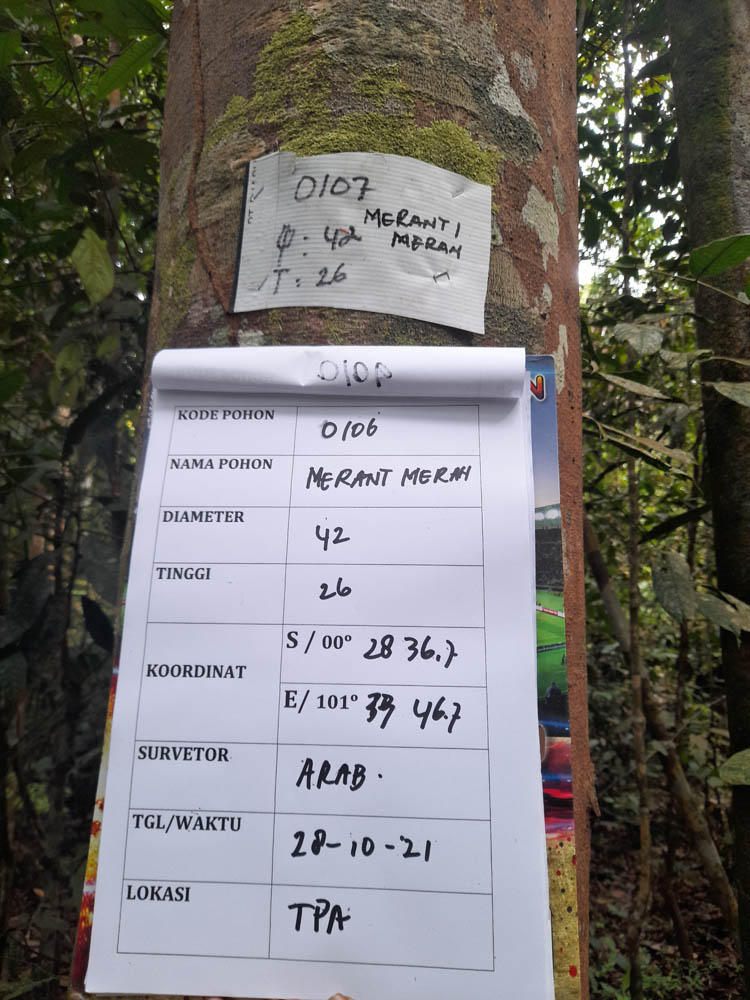 0107
MERANTI
MERAH
φ : 42
T : 26
KODE POHON 0106
NAMA POHON MERANT MERAH
DIAMETER 42
TINGGI 26
KOORDINAT
S / 00° 28 36.7
E/ 101° 46.7
SURVETOR ARAB.
TGL/WAKTU 28-10-21
LOKASI TPA